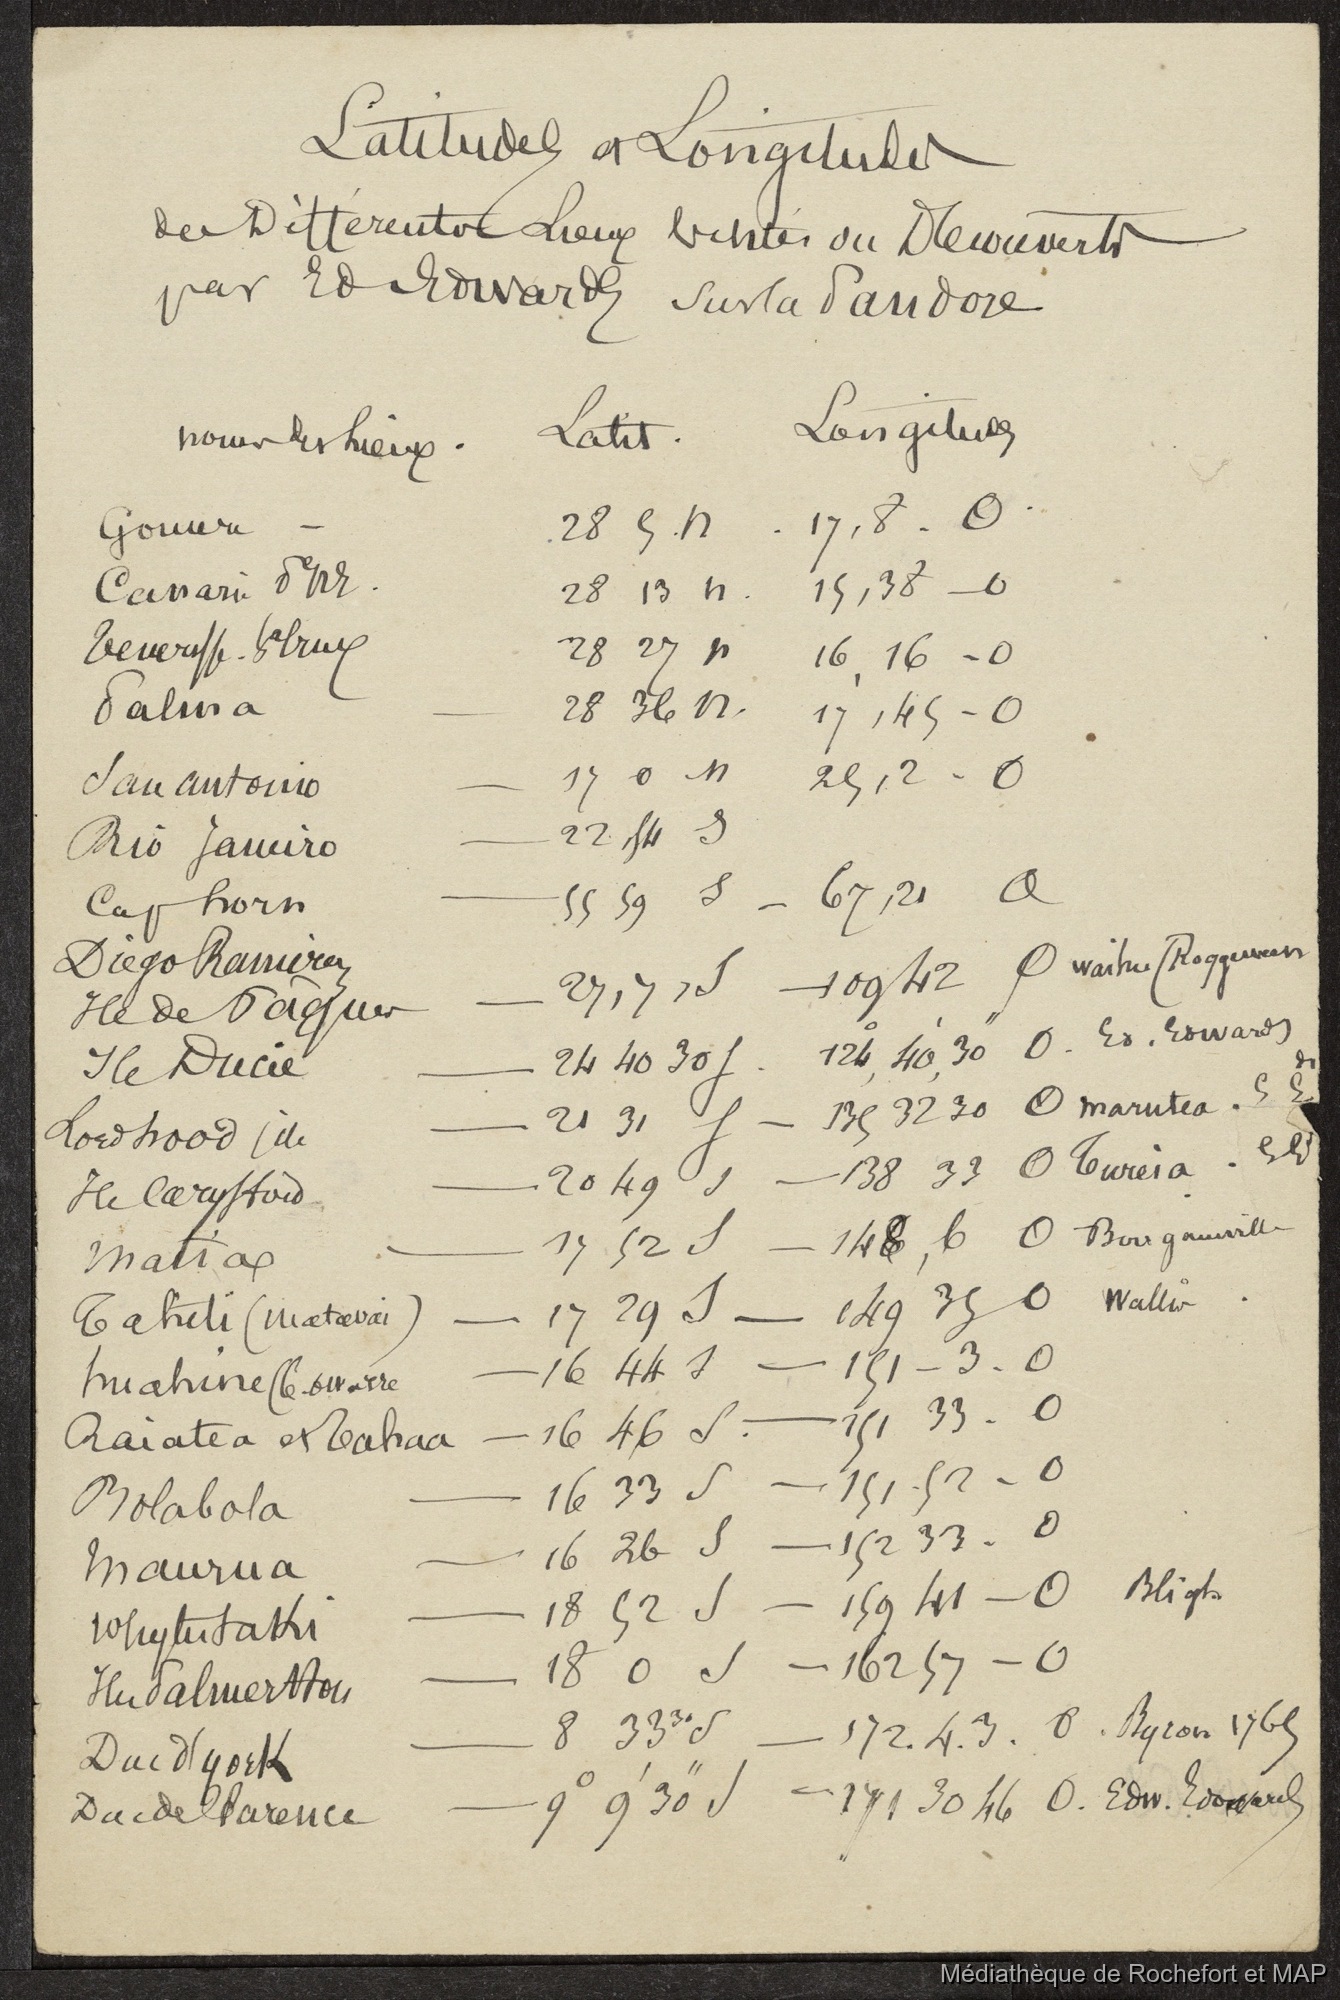 Latitudes et Longitudes
des Différents Lieux visités ou Découverts
par Ed Edwards sur la Pandore
noms des Lieux. Latit. Longitudes
Gomera — 28 5 N. 17,8 - O
Canarie Pte NE. 28 13 N. 15,38 - O
Teneriffe. Sta Crux 28 27 N 16,16 - O
Palma — 28 36 N. 17,45 - O
San Antonio — 17 0 N 25,2 - O
Rio Janeiro — 22 54 S
Cap horn — 55 59 S - 67,21 O
Diego Ramirez
Ile de Pâques — 27,7, S — 109 42 O Waihu (Roggeween
Ile Ducie — 24 40 30 S. 124°, 40', 30" O. Ed. Edwards
Lord hood ile — 21 31 S — 135 32 30 O marutea. E E
Ile Carysford — 20 49 S — 138 33 O Tureia. E Ed
Matia — 17 52 S — 148, 6 O Bougainville
Tahiti (Matavai) — 17 29 S — 149 35 O Wallis.
huahine — 16 44 S — 151 - 3 - O
Raiatea et Tahaa — 16 46 S. — 151 33 - O
Bolabola — 16 33 S — 151 - 52 - O
Maurua — 16 26 S — 152 33 - O
Whytutaki — 18 52 S — 159 41 - O Bligh
Iles Palmerston — 18 0 S — 162 57 - O
Duc d'york — 8 33 30 S — 172. 4. 3. O. Byron 1765
Duc de Clarence — 9° 9' 30" S — 171 30 46 O. Edw. Edwards
Médiathèque de Rochefort et MAP